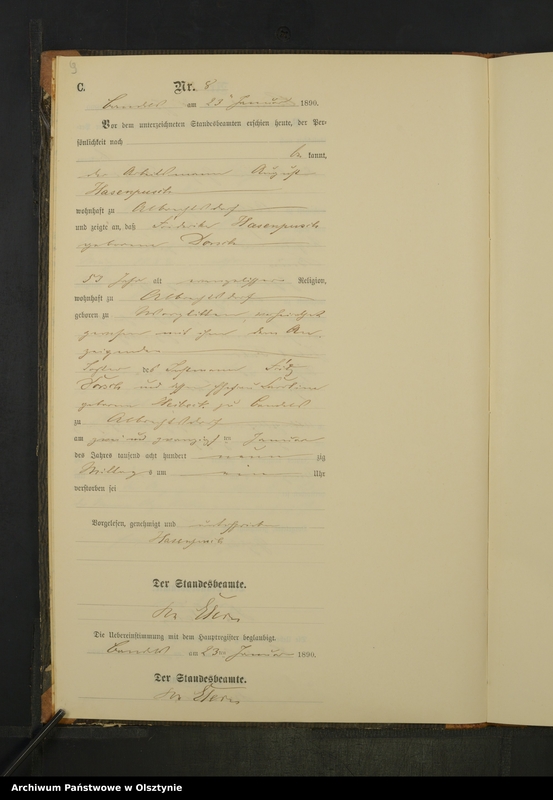 9
C.
Nr. 8
am 23 Januar 1890.
Vor dem unterzeichneten Standesbeamten erschien heute, der Per-
sönlichkeit nach
be kannt,
der Arbeitsmann August
Hasenpusch
wohnhaft zu Albrechtsdorf
und zeigte an, daß Hasenpusch
geborene Dorsch
53 Jahr alt evangelischer Religion,
wohnhaft zu Albrechtsdorf
geboren zu Worglitten, verheirathet
gewesen mit ihm dem An-
zeigenden
Tochter des Fritz
Dorsch und Ehefrau
geborene zu
zu Albrechtsdorf
am zwei und zwanzigsten Januar
des Jahres tausend acht hundert neun zig
Mittags um ein Uhr
verstorben sei
Vorgelesen, genehmigt und unterschrieben
Hasenpusch
Der Standesbeamte.
Die Uebereinstimmung mit dem Hauptregister beglaubigt.
am 23ten Januar 1890.
Der Standesbeamte.
Archiwum Państwowe w Olsztynie